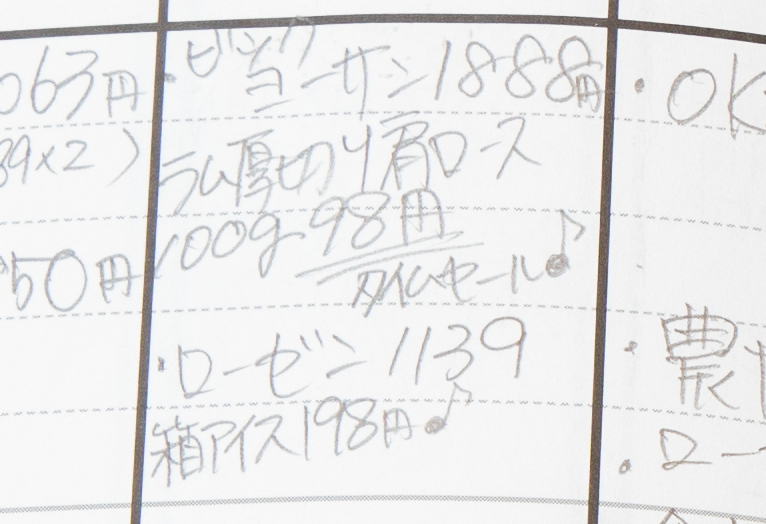 063円
39×2)
50円
・ビッグ
ヨーサン1888円
ラム厚切り肩ロース
100g 98円
タイムセール♪
・ローゼン1139
箱アイス198円♪
・OK
・農
・ロー